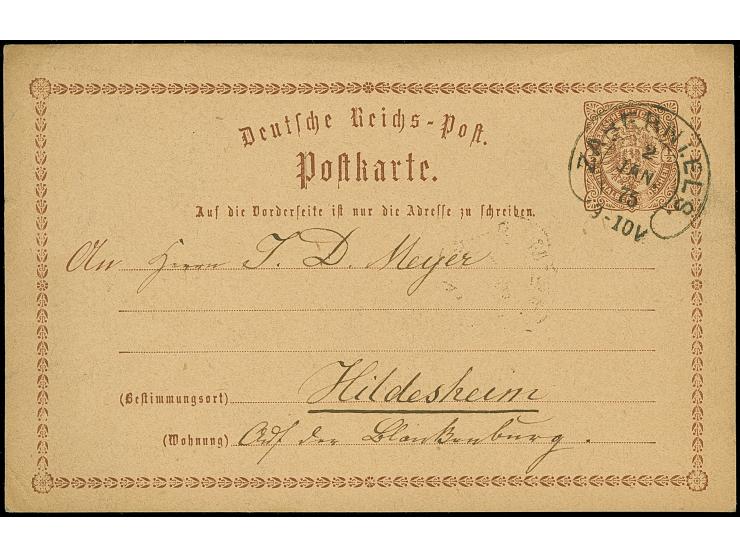 Deutsche Reichs-Post.
Postkarte.
ZABERN I. ELS.
2
JAN
75
9-10V
Auf die Vorderseite ist nur die Adresse zu schreiben.
An Herrn J. D. Meyer
(Bestimmungsort) Hildesheim
(Wohnung) Auf der Blankenburg.